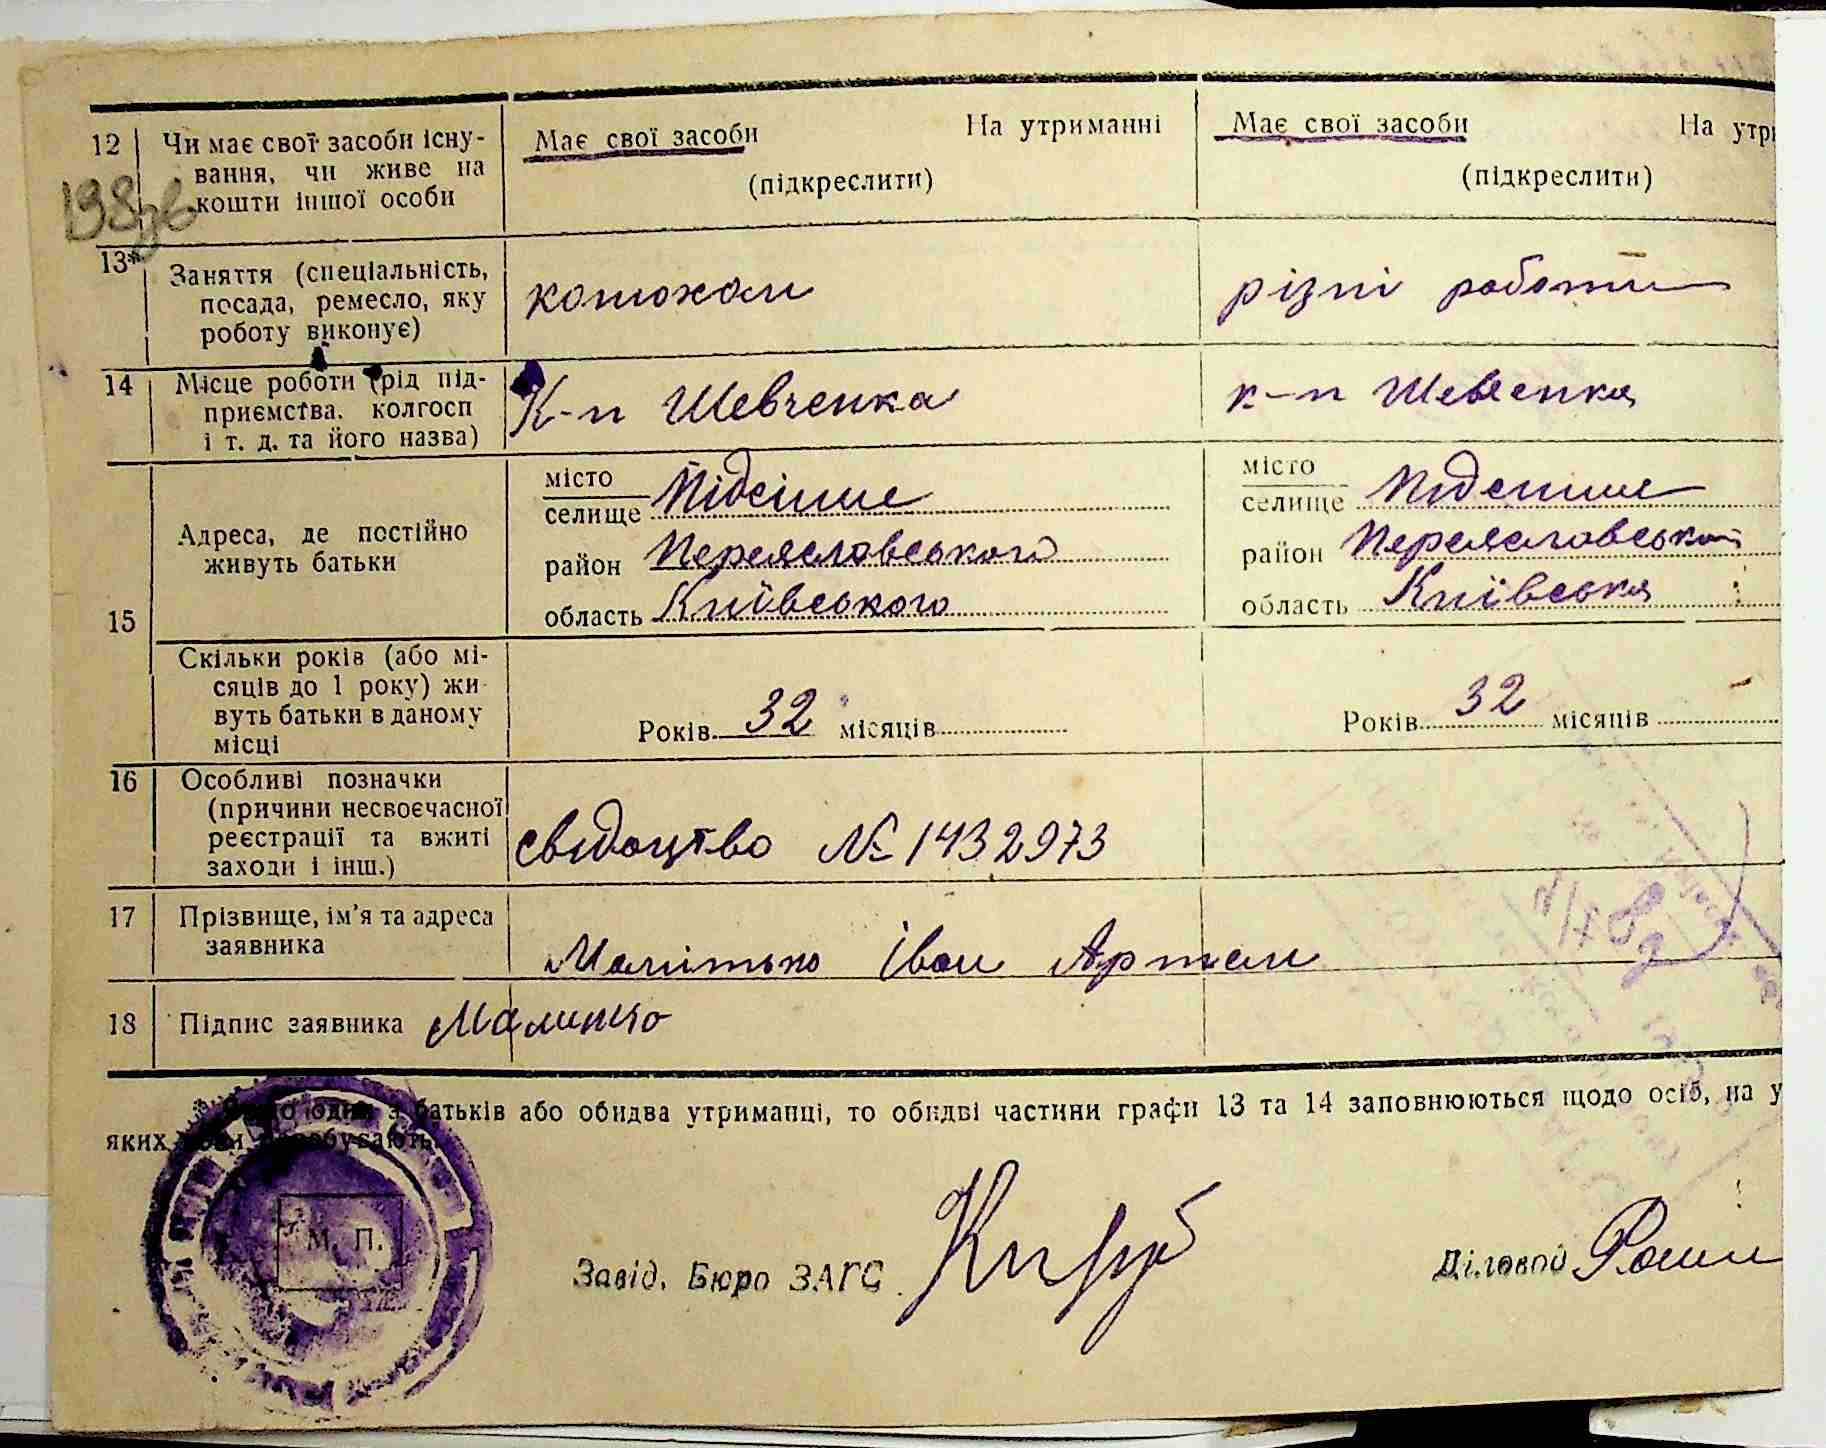 12 Чи має свої засоби існу-
вання, чи живе на
кошти іншої особи
Має свої засоби На утриманні
(підкреслити)
Має свої засоби На утри
(підкреслити)
198зв
13* Заняття (спеціальність,
посада, ремесло, яку
роботу виконує)
конюхом
різні роботи
14 Місце роботи (рід під-
приємства. колгосп
і т. д. та його назва)
К-п Шевченка
к-п Шевченка
15 Адреса, де постійно
живуть батьки
місто
селище Підсінне
район Переяславського
область Київського
місто
селище Підсінне
район Переяславський
область Київська
Скільки років (або мі-
сяців до 1 року) жи
вуть батьки в даному
місці
Років 32 місяців
Років 32 місяців
16 Особливі позначки
(причини несвоєчасної
реєстрації та вжиті
заходи і інш.)
свідоцтво № 1432973
17 Прізвище, ім'я та адреса
заявника
Малитько Іван Артем
18 Підпис заявника Малитко
з батьків або обидва утриманці, то обидві частини графи 13 та 14 заповнюються щодо осіб, на у
яких
М. П.
Завід. Бюро ЗАГС
Діловод